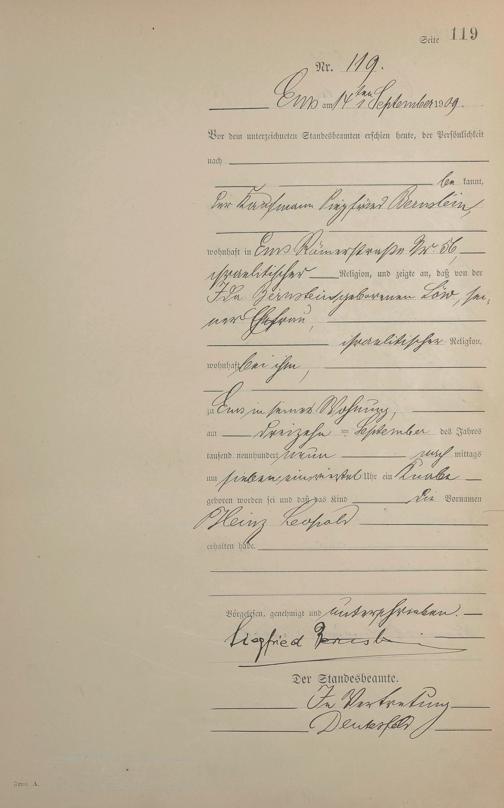 Seite 119
Nr. 119.
Ems am 14ten September 1909.
Vor dem unterzeichneten Standesbeamten erschien heute, der Persönlichkeit
nach
be kannt,
der Kaufmann Siegfried Bernstein,
wohnhaft in Ems Römerstraße Nr 56,
israelitischer Religion, und zeigte an, daß von der
Ida Bernstein geborenen Löw, sei-
ner Ehefrau,
israelitischer Religion,
wohnhaft bei ihm,
zu Ems in seiner Wohnung,
am dreizehn = September des Jahres
tausend neunhundert neun nach mittags
um sieben einviertel Uhr ein Knabe
geboren worden sei und daß das Kind die Vornamen
Heinz Leopold
erhalten habe.
Vorgelesen, genehmigt und unterschrieben.
Siegfried Bernstein
Der Standesbeamte.
In Vertretung
Form A.